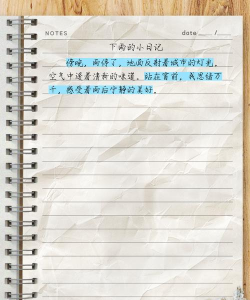 NOTES
date ___ /___
下雨的小日记
傍晚，雨停了，地面反射着城市的灯光，
空气中透着清新的味道。站在窗前，我思绪万
千，感受着雨后宁静的美好。